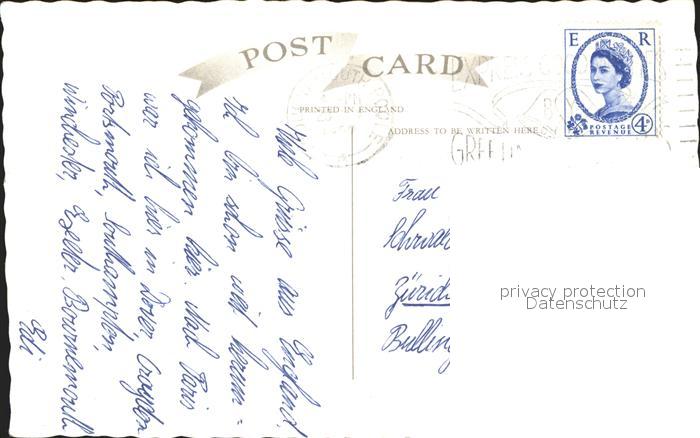 POST CARD
PRINTED IN ENGLAND
ADDRESS TO BE WRITTEN HERE
E R
POSTAGE
REVENUE
4D
GREETIN
Viele Grüsse aus England.
Ich bin schon weit herum=
gekommen hier. Nach Paris
war ich hier in Dover, Croydon
Portsmouth, Southampton,
Winchester, Exeter, Bournemouth
Edi
Frau
Zürich
Bulling
privacy protection
Datenschutz